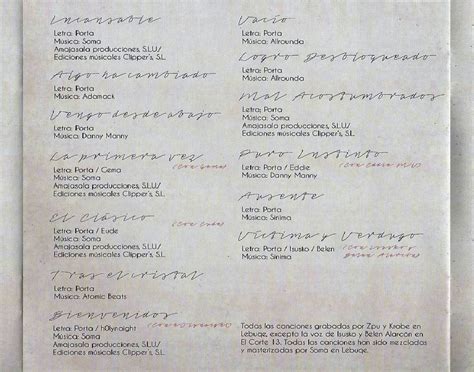 Incansable
Letra: Porta
Música: Soma
Amajasala producciones, S.L.U/
Ediciones músicales Clipper's, S.L
Algo ha cambiado
Letra: Porta
Música: Adamack
Vengo desde abajo
Letra: Porta
Música: Danny Manny
La primera vez
Letra: Porta / Gema
Música: Soma
Amajasala producciones, S.L.U/
Ediciones músicales Clipper's, S.L
El Clásico
Letra: Porta / Eude
Música: Soma
Amajasala producciones, S.L.U/
Ediciones músicales Clipper's, S.L
Tras el cristal
Letra: Porta
Música: Atomic Beats
Bienvenidos
Letra: Porta / h0lynaight
Música: Soma
Amajasala producciones, S.L.U/
Ediciones músicales Clipper's, S.L
Vacío
Letra: Porta
Música: Allrounda
Logro Desbloqueado
Letra: Porta
Música: Allrounda
Mal Acostumbrados
Letra: Porta
Música: Soma
Amajasala producciones, S.L.U/
Ediciones músicales Clipper's, S.L
Puro Instinto
Letra: Porta / Eddie
Música: Danny Manny
Ausente
Letra: Porta
Música: Sinima
Víctima y Verdugo
Letra: Porta / Isusko / Belen
Música: Sinima
Todas las canciones grabadas por Zpu y Krobe en
Lebuqe, excepto la voz de Isusko y Belen Alarcón en
El Corte 13. Todas las canciones han sido mezcladas
y masterizadas por Soma en Lebuqe.